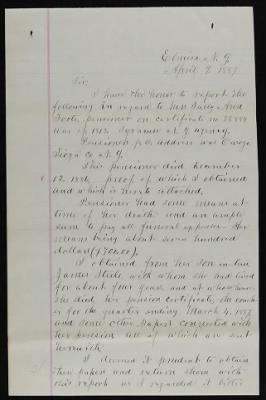 Elmira N.Y.
April 7 1887
Sir;
I have the honor to report the
following in regard to Mrs Sally Ana
Foote, pensioner on certificate no
War of 1812, Syracuse N.Y. agency.
Pensioners p.o. address was Owego
Tioga Co N.Y.
This pensioner died December
12. 1886, proof of which I obtained
and which is hereto attached.
Pensioner had some means at
time of her death and an ample
sum to pay all funeral expenses. Her
means being about seven hundred
dollars ($700.00).
I obtained from her son in law
James Steele with whom she had lived
for about four years, and at whose house
she died her pension certificate, the vouch-
er for the quarter ending March 4. 1887
and some other papers connected with
her pension all of which are sent
herewith.
I deemed it prudent to obtain
these papers and return them with
this report as I regarded it better